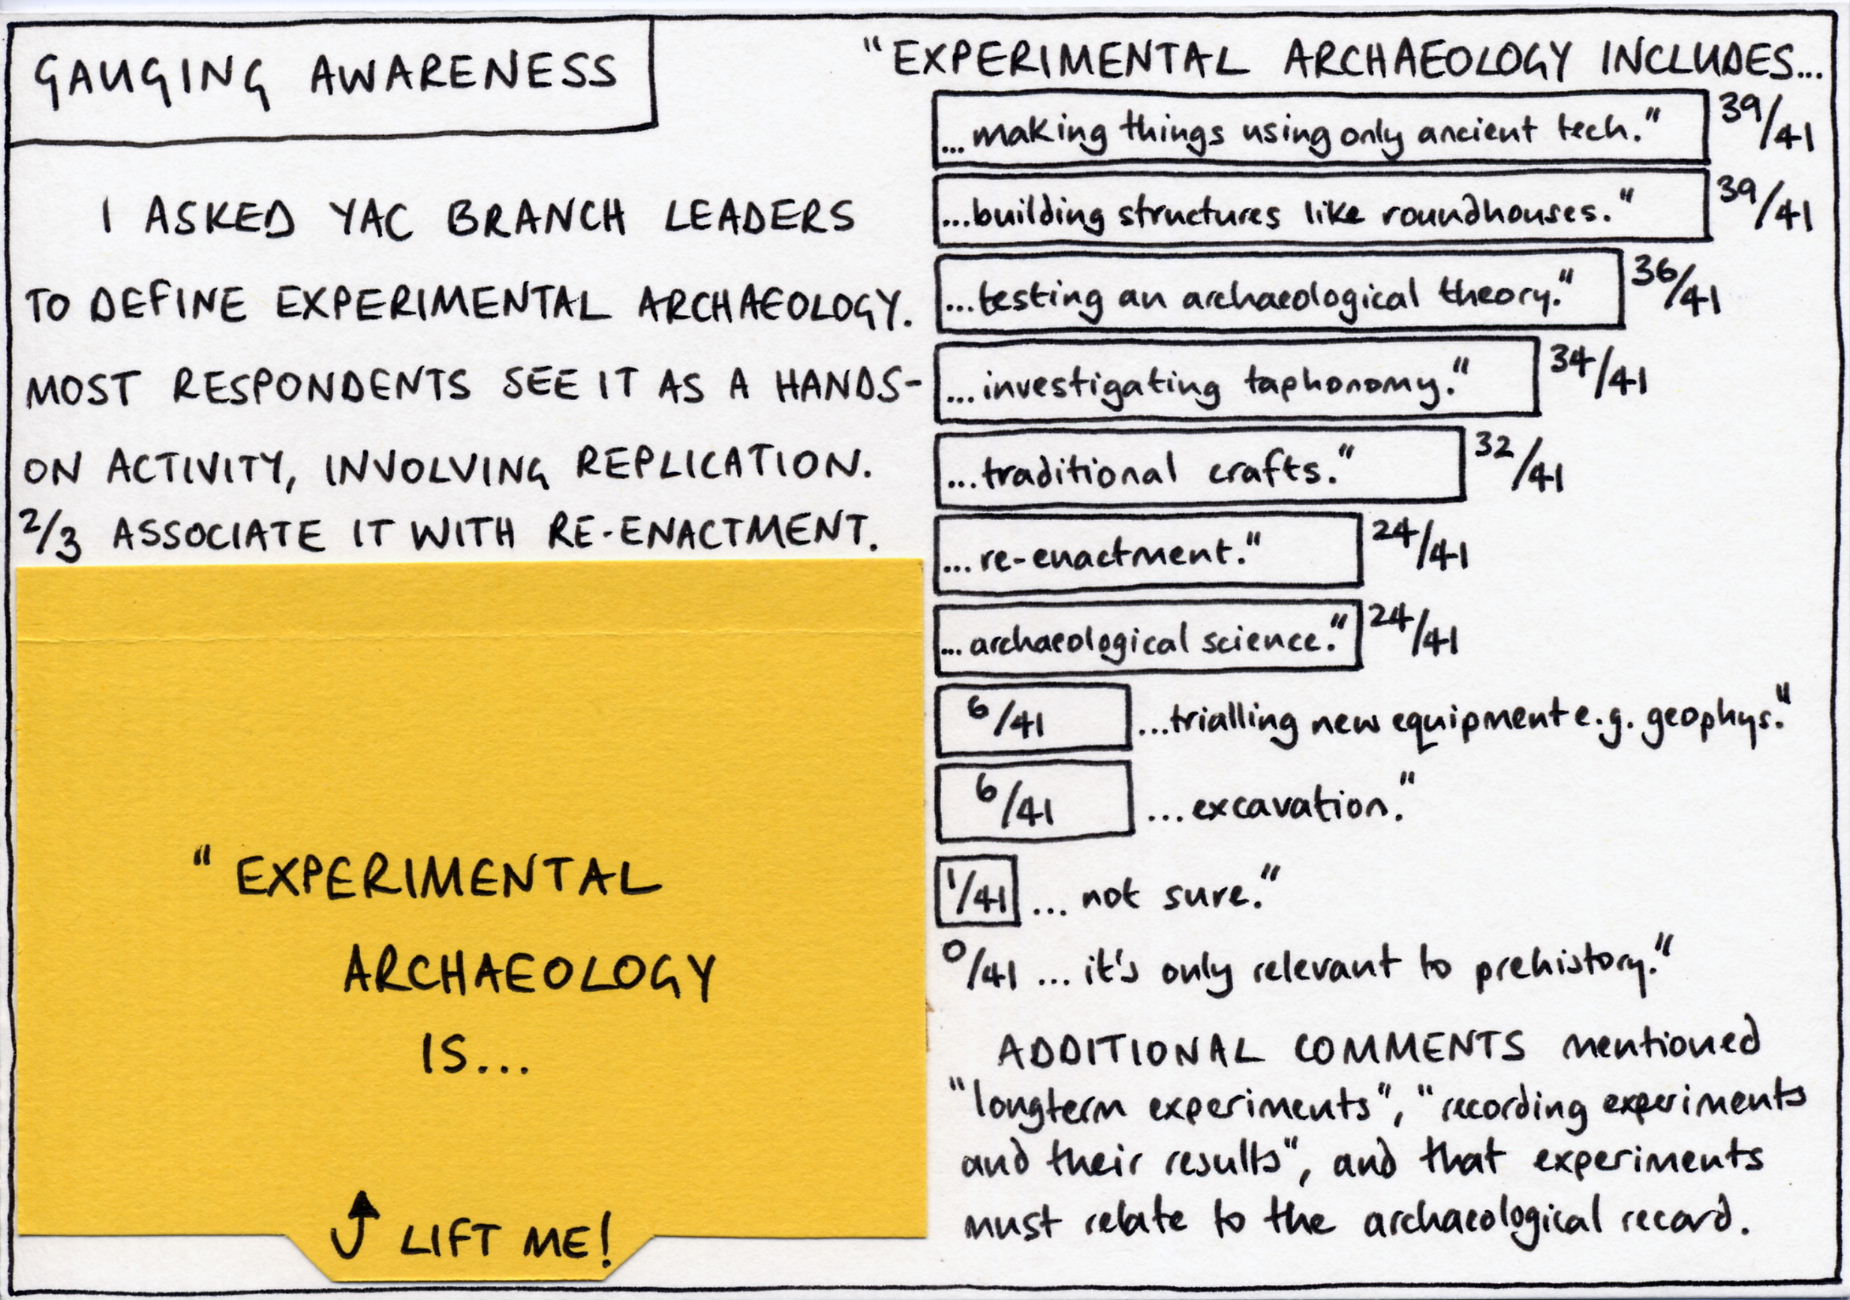 GAUGING AWARENESS
I ASKED YAC BRANCH LEADERS
TO DEFINE EXPERIMENTAL ARCHAEOLOGY.
MOST RESPONDENTS SEE IT AS A HANDS-
ON ACTIVITY, INVOLVING REPLICATION.
2/3 ASSOCIATE IT WITH RE-ENACTMENT.
"EXPERIMENTAL
ARCHAEOLOGY
IS...
LIFT ME!
"EXPERIMENTAL ARCHAEOLOGY INCLUDES...
...making things using only ancient tech." 39/41
...building structures like roundhouses." 39/41
...testing an archaeological theory." 36/41
...investigating taphonomy." 34/41
...traditional crafts." 32/41
...re-enactment." 24/41
...archaeological science." 24/41
6/41 ...trialling new equipment e.g. geophys."
6/41 ...excavation."
1/41 ... not sure."
0/41 ... it's only relevant to prehistory."
ADDITIONAL COMMENTS mentioned
"longterm experiments", "recording experiments
and their results", and that experiments
must relate to the archaeological record.